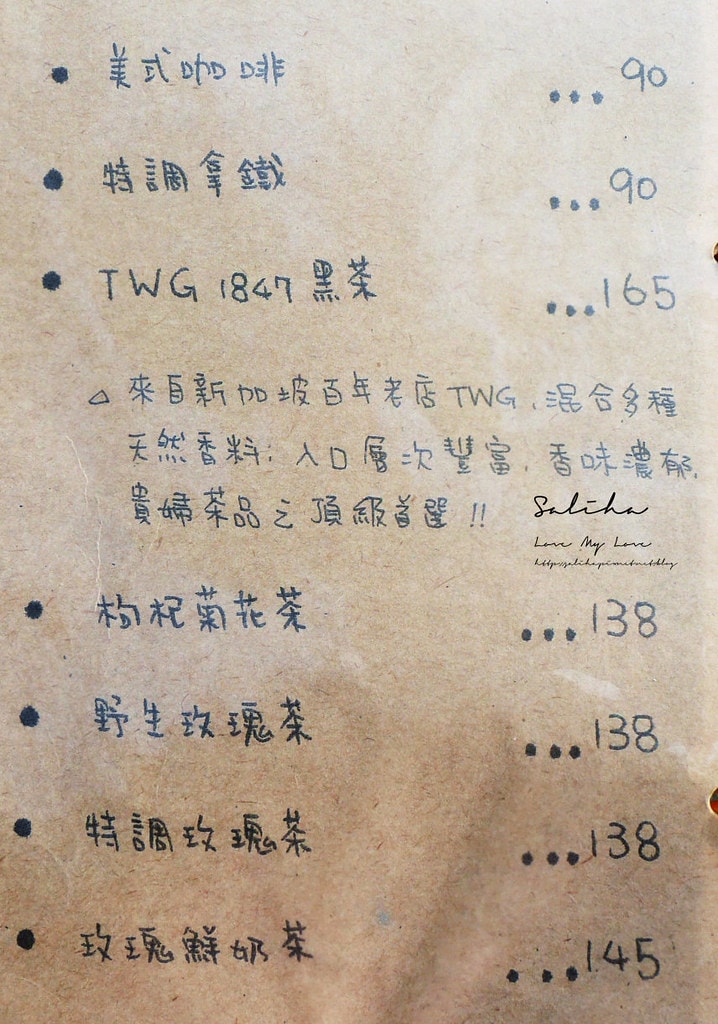 • 美式咖啡 ...90
• 特調拿鐵 ...90
• TWG 1847 黑茶 ...165
△ 來自新加坡百年老店TWG,混合多種
天然香料;入口層次豐富,香味濃郁,
貴婦茶品之頂級首選!!
Saliha
Love My Love
http://saliha.pixnet.net/blog
• 枸杞菊花茶 ...138
• 野生玫瑰茶 ...138
• 特調玫瑰茶 ...138
• 玫瑰鮮奶茶 ...145